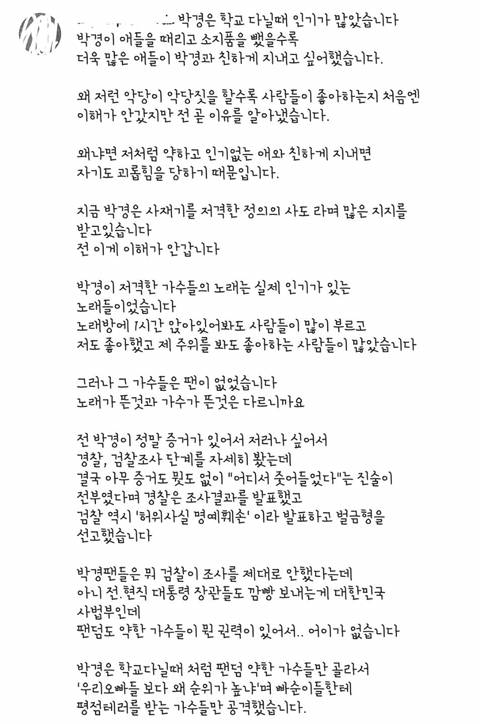 박경은 학교 다닐때 인기가 많았습니다
박경이 애들을 때리고 소지품을 뺐을수록
더욱 많은 애들이 박경과 친하게 지내고 싶어했습니다.
왜 저런 악당이 악당짓을 할수록 사람들이 좋아하는지 처음엔
이해가 안갔지만 전 곧 이유를 알아냈습니다.
왜냐면 저처럼 약하고 인기없는 애와 친하게 지내면
자기도 괴롭힘을 당하기 때문입니다.
지금 박경은 사재기를 저격한 정의의 사도 라며 많은 지지를
받고있습니다
전 이게 이해가 안갑니다
박경이 저격한 가수들의 노래는 실제 인기가 있는
노래들이었습니다
노래방에 1시간 앉아있어봐도 사람들이 많이 부르고
저도 좋아했고 제 주위를 봐도 좋아하는 사람들이 많았습니다
그러나 그 가수들은 팬이 없었습니다
노래가 뜬것과 가수가 뜬것은 다르니까요
전 박경이 정말 증거가 있어서 저러나 싶어서
경찰, 검찰조사 단계를 자세히 봤는데
결국 아무 증거도 뭣도 없이 "어디서 줏어들었다"는 진술이
전부였다며 경찰은 조사결과를 발표했고
검찰 역시 '허위사실 명예훼손' 이라 발표하고 벌금형을
선고했습니다
박경팬들은 뭐 검찰이 조사를 제대로 안했다는데
아니 전.현직 대통령 장관들도 깜빵 보내는게 대한민국
사법부인데
팬덤도 약한 가수들이 뭔 권력이 있어서.. 어이가 없습니다
박경은 학교다닐때 처럼 팬덤 약한 가수들만 골라서
'우리오빠들 보다 왜 순위가 높냐'며 빠순이들한테
평점테러를 받는 가수들만 공격했습니다.